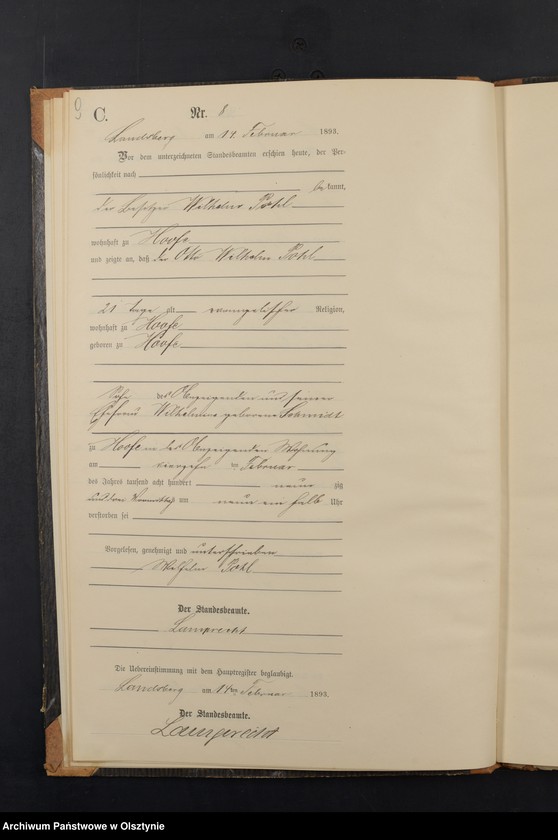 9
C.
Nr. 8
Landsberg am 14 Februar 1893.
Vor dem unterzeichneten Standesbeamten erschien heute, der Per-
sönlichkeit nach
be kannt,
der Besitzer Wilhelm Pohl
wohnhaft zu Hoofe
und zeigte an, daß der Otto Wilhelm Pohl
21 Tage alt evangelischer Religion,
wohnhaft zu Hoofe
geboren zu Hoofe
Sohn des Anzeigenden und seiner
Ehefrau Wilhelmine geborene Schmidt
zu Hoofe in des Anzeigenden Wohnung
am vierzehn ten Februar
des Jahres tausend acht hundert neun zig
und drei Vormittags um neun ein halb Uhr
verstorben sei
Vorgelesen, genehmigt und unterschrieben
Wilhelm Pohl
Der Standesbeamte.
Lamprecht
Die Uebereinstimmung mit dem Hauptregister beglaubigt.
Landsberg am 14ten Februar 1893.
Der Standesbeamte.
Lamprecht
Archiwum Państwowe w Olsztynie